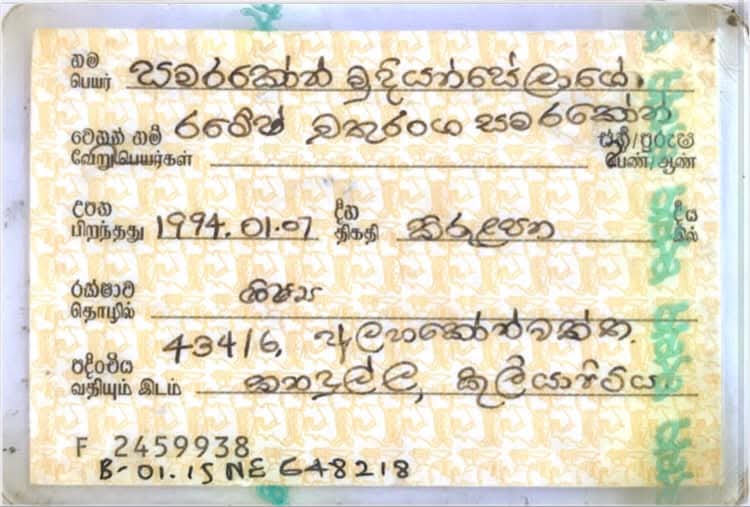 නම සමරකෝන් මුදියන්සේලාගේ
பெயர்
රමේෂ් චතුරංග සමරකෝන්
වෙනත් නම් ස්ත්‍රී/පුරුෂ
வேறு பெயர்கள் பெண்/ஆண்
උපන් 1994.01.07 දින කිරුළපන දීය
பிறந்தது திகதி இல்
රක්ෂාව ශිෂ්‍ය
தொழில்
434/6,
පදිංචිය
வதியும் இடம் කනදුල්ල, කුලියාපිටිය
F 2459938
B-01.15 NE 648218